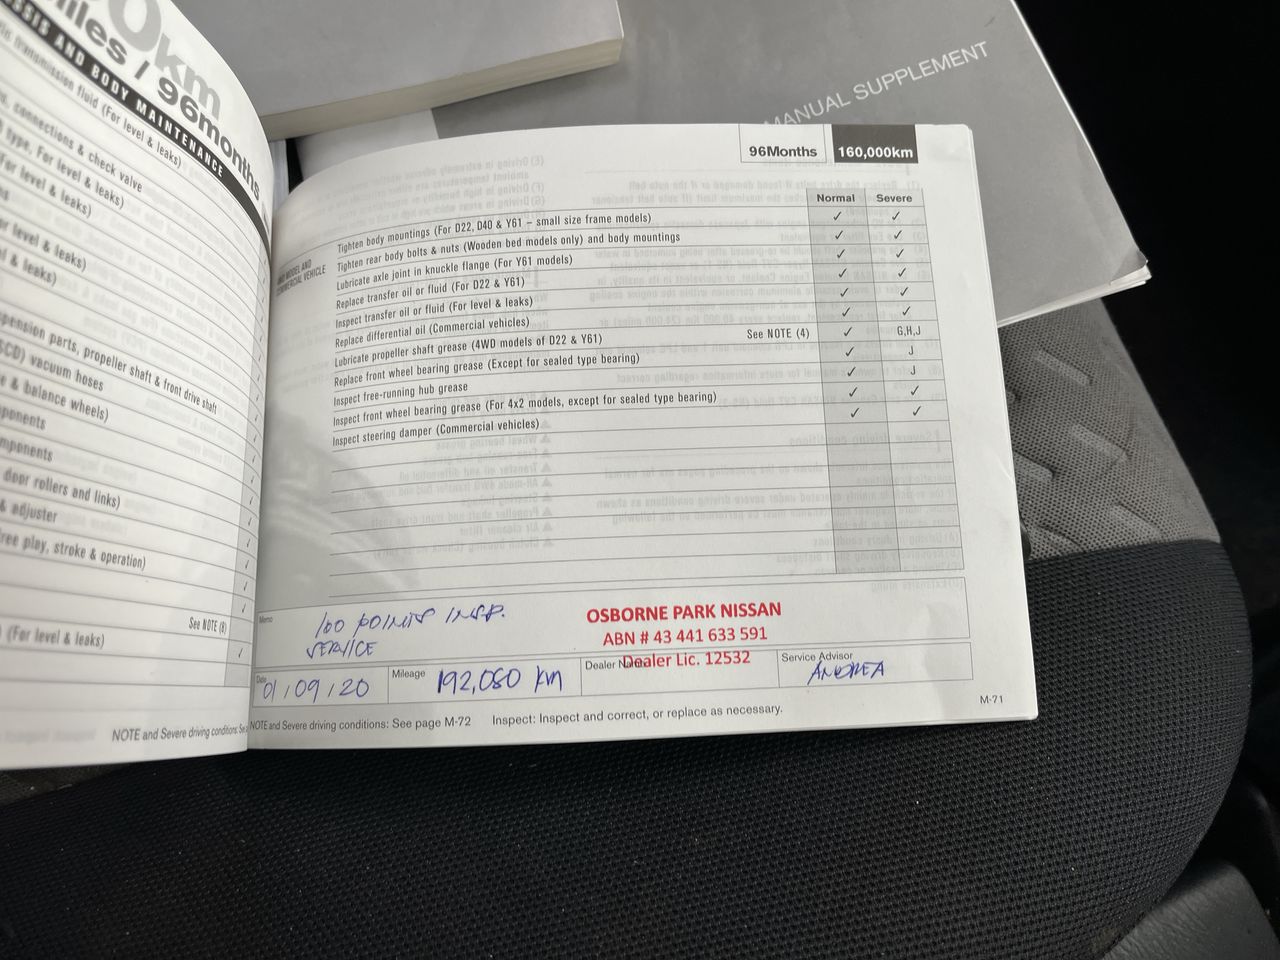 0km
miles / 96months
SSIS AND BODY MAINTENANCE
transmission fluid (For level & leaks)
connections & check valve
type, For level & leaks)
For level & leaks)
or level & leaks)
& leaks)
pension parts, propeller shaft & front drive shaft
SCD) vacuum hoses
e & balance wheels)
ponents
mponents
door rollers and links)
& adjuster
ree play, stroke & operation)
See NOTE (8)
(For level & leaks)
NOTE and Severe driving conditions: See
MANUAL SUPPLEMENT
96Months 160,000km
Normal Severe
Tighten body mountings (For D22, D40 & Y61 – small size frame models) ✓ ✓
Tighten rear body bolts & nuts (Wooden bed models only) and body mountings ✓ ✓
Lubricate axle joint in knuckle flange (For Y61 models) ✓ ✓
Replace transfer oil or fluid (For D22 & Y61) ✓ ✓
Inspect transfer oil or fluid (For level & leaks) ✓ ✓
Replace differential oil (Commercial vehicles) ✓ ✓
Lubricate propeller shaft grease (4WD models of D22 & Y61) See NOTE (4) ✓ G,H,J
Replace front wheel bearing grease (Except for sealed type bearing) ✓ J
Inspect free-running hub grease ✓ J
Inspect front wheel bearing grease (For 4x2 models, except for sealed type bearing) ✓ ✓
Inspect steering damper (Commercial vehicles) ✓ ✓
4WD MODEL AND
COMMERCIAL VEHICLE
Memo
100 POINTS INSP.
SERVICE
OSBORNE PARK NISSAN
ABN # 43 441 633 591
Dealer Lic. 12532
Date 01/09/20
Mileage 192,080 km
Dealer Name
Service Advisor
ANDREA
NOTE and Severe driving conditions: See page M-72 Inspect: Inspect and correct, or replace as necessary.
M-71